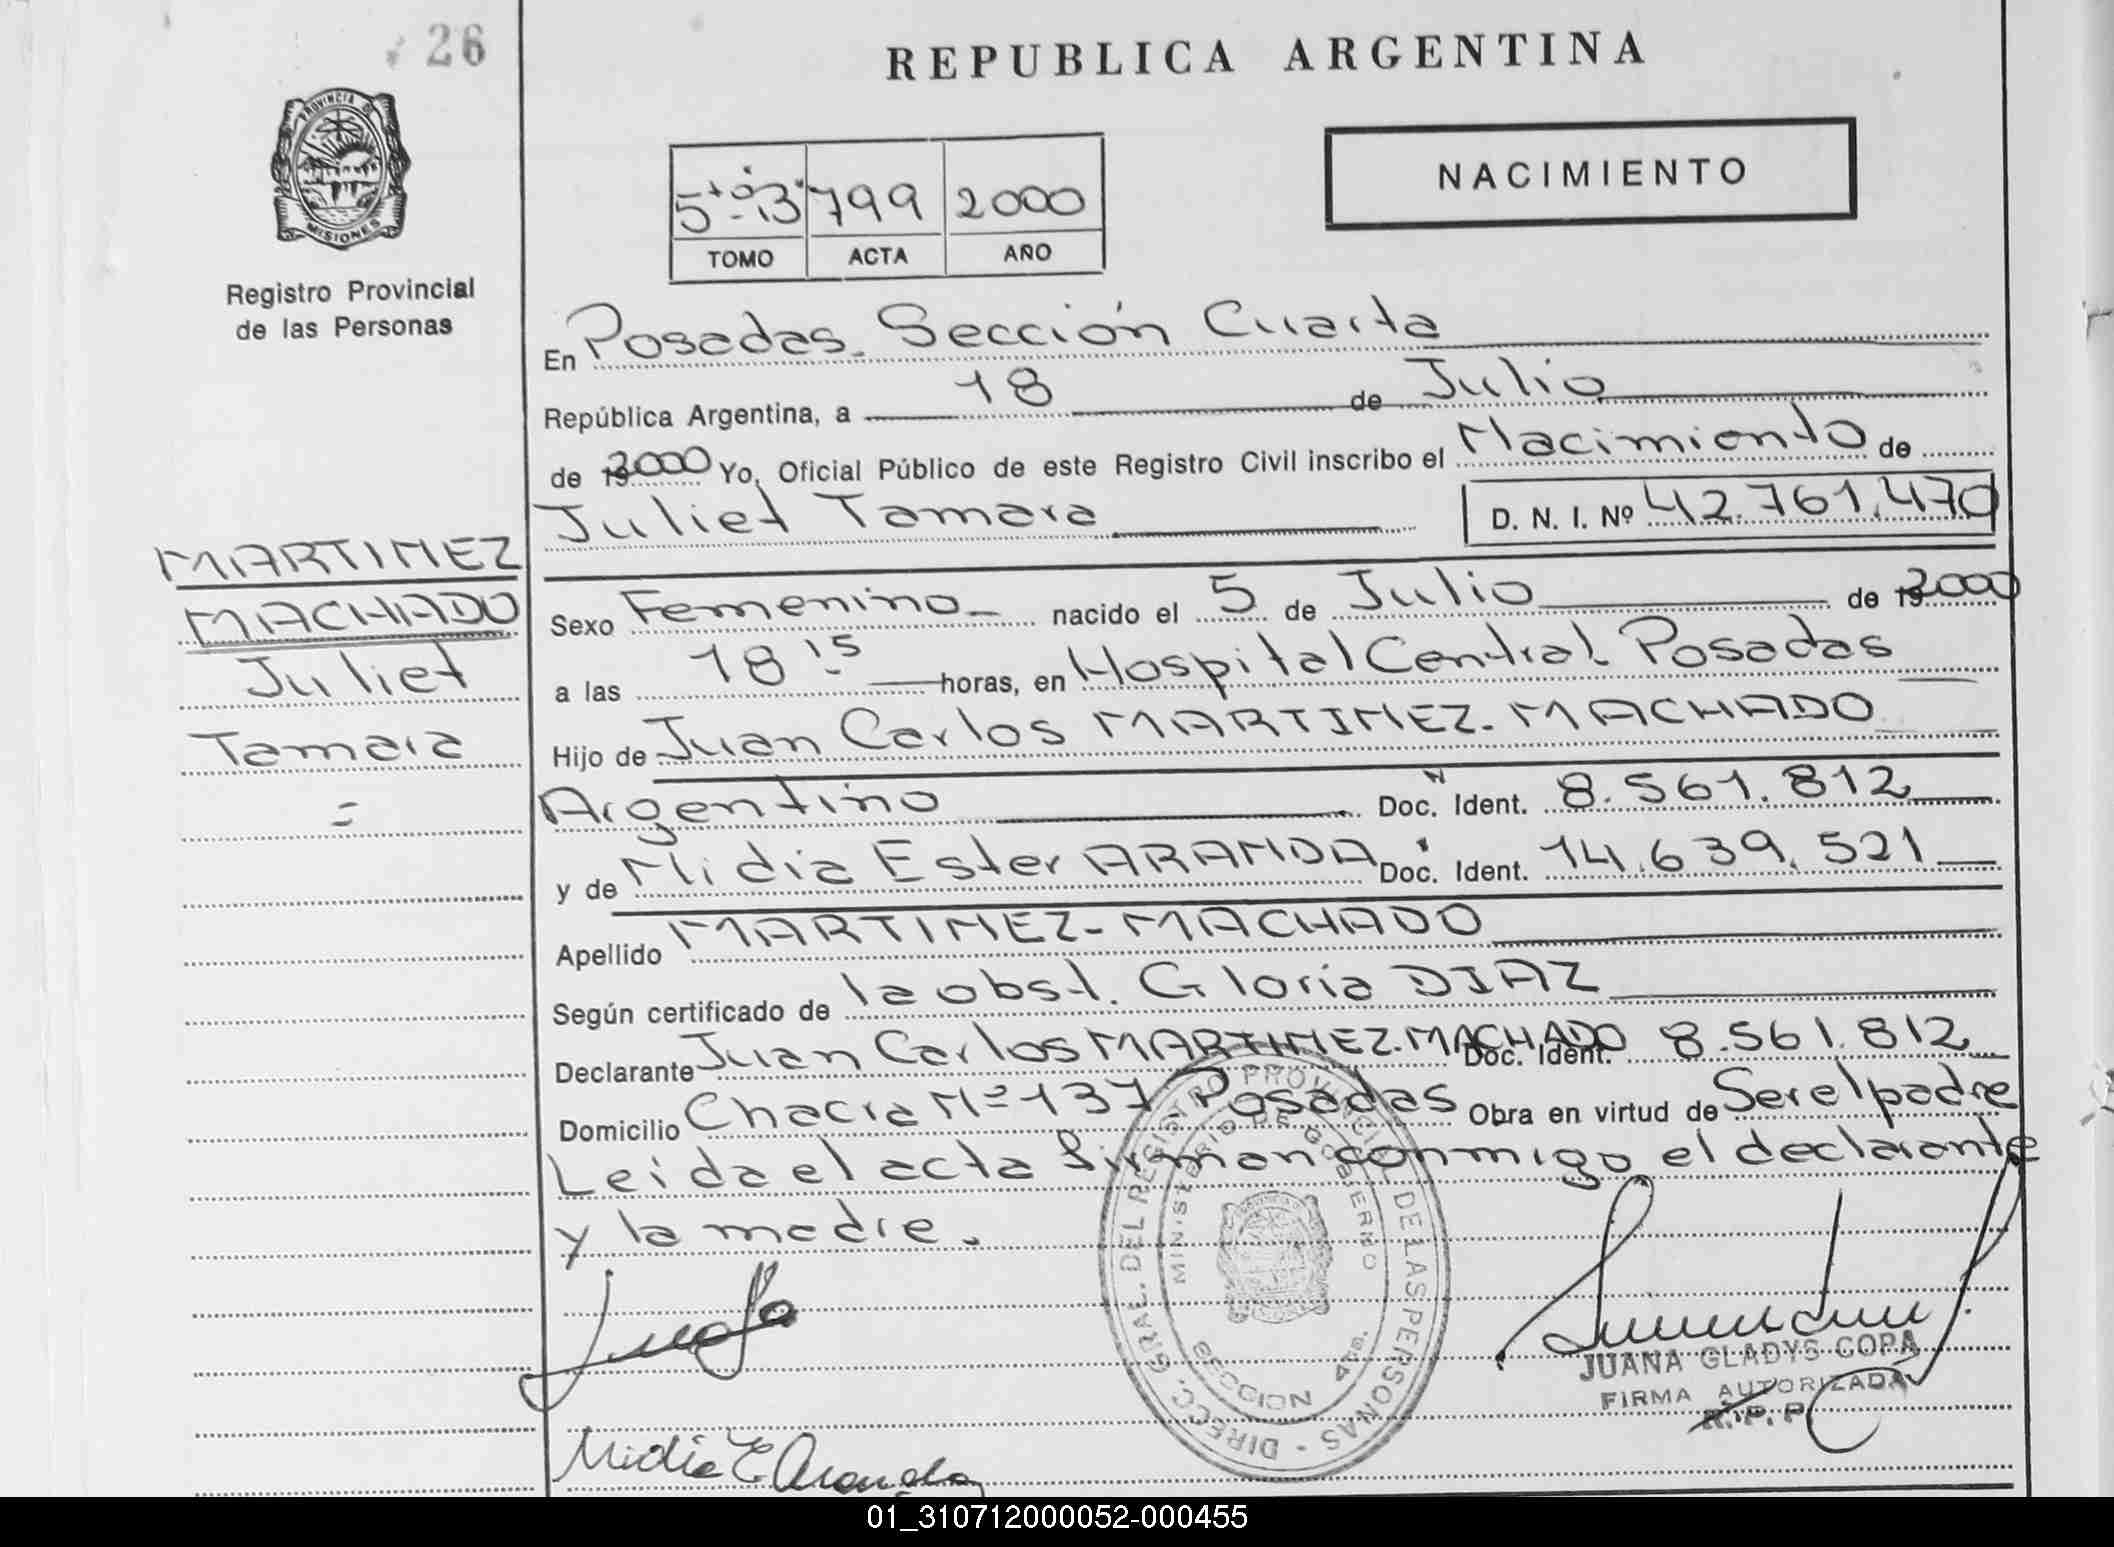 26
REPUBLICA ARGENTINA
PROVINCIA DE
MISIONES
Registro Provincial
de las Personas
NACIMIENTO
5to-13 799 2000
TOMO ACTA AÑO
En Posadas. Sección Cuarta
República Argentina, a 18 de Julio
de 2000 Yo, Oficial Público de este Registro Civil inscribo el Nacimiento de
Juliet Tamara D. N. I. Nº 42.761.470
MARTINEZ
MACHADO
Juliet
Tamara
Sexo Femenino nacido el 5 de Julio de 2000
a las 18 15 horas, en Hospital Central Posadas
Hijo de Juan Carlos MARTINEZ-MACHADO
Argentino Doc. Ident. 8.561.812
y de Nidia Ester ARANDA Doc. Ident. 14.639.521
Apellido MARTINEZ-MACHADO
Según certificado de la obst. Gloria DIAZ
Declarante Juan Carlos MARTINEZ-MACHADO Doc. Ident. 8.561.812
Domicilio Chacra Nº 137 Posadas Obra en virtud de Ser el padre
Leida el acta firman conmigo el declarante
y la madre.
DIRECC. GRAL. DEL REGISTRO PROVINCIAL DE LAS PERSONAS
MINISTERIO DE GOBIERNO
SECCION 4ta.
JUANA GLADYS COPA
FIRMA AUTORIZADA
R.P.P.
Nidia E Aranda
01_310712000052-000455